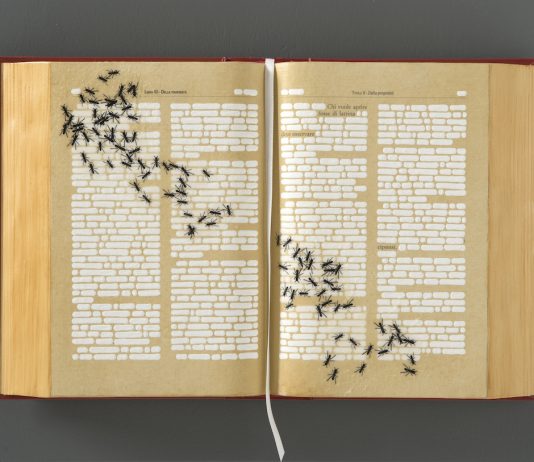 Libro III - Della proprietà
Titolo II - Della proprietà
Chi vuole aprire
fosse di latrina
deve osservare